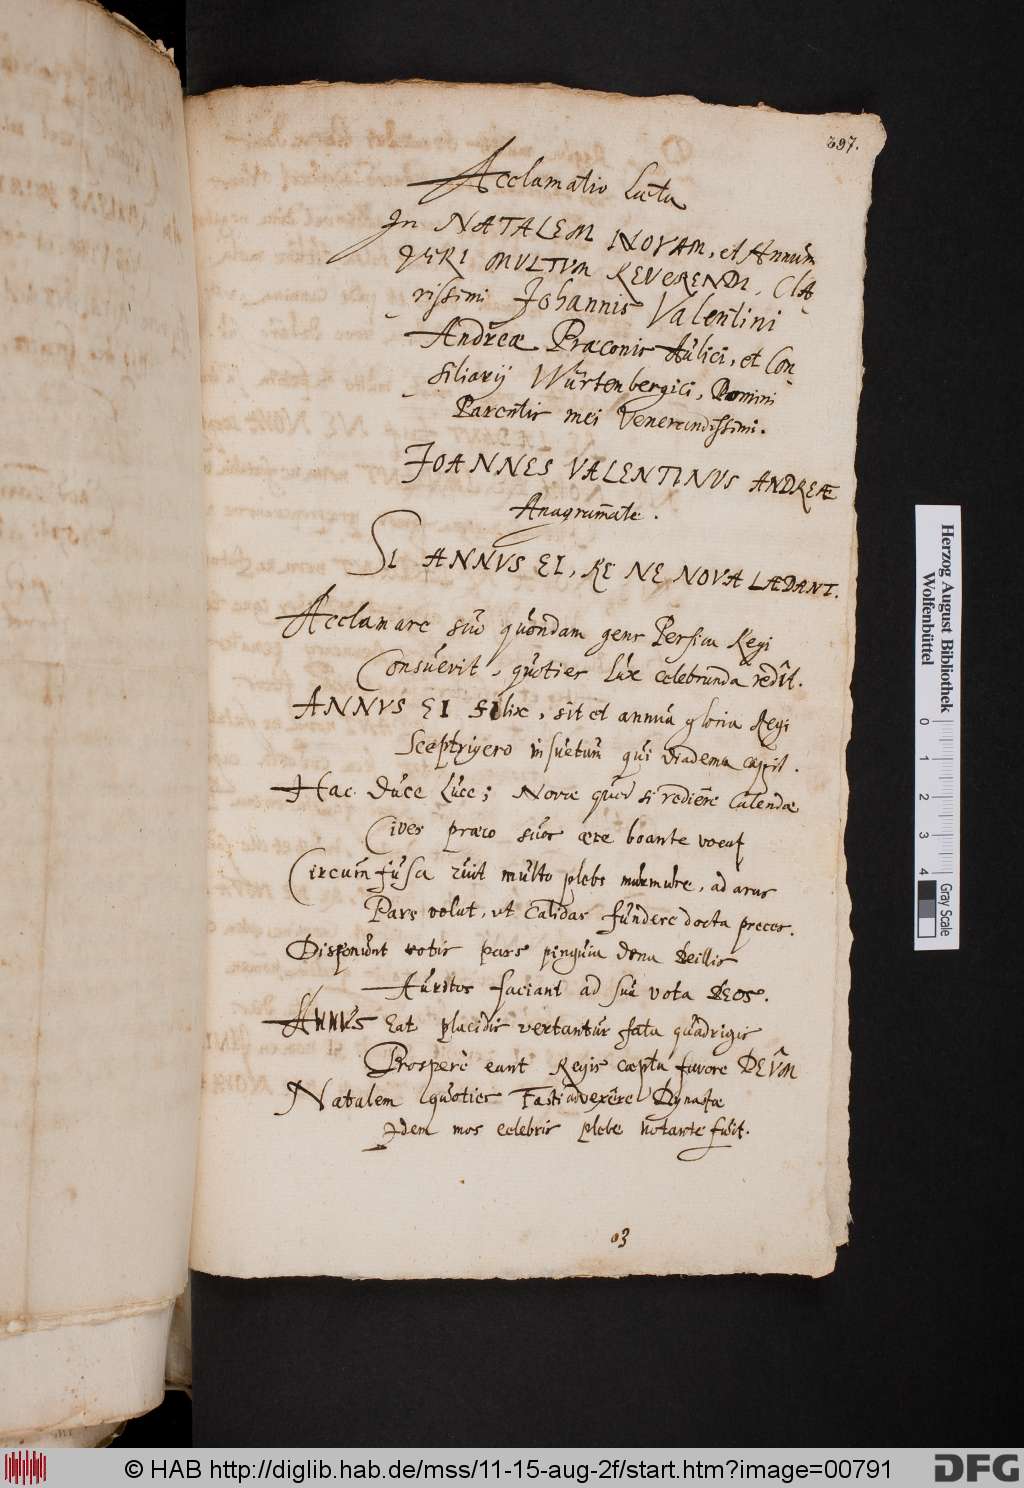 397.
Acclamatio laeta
In NATALEM NOVAM, et Annum
VERI MULTUM REVERENDI, Cla-
rissimi Johannis Valentini
Andreae Praeconis Aulici, et Con-
siliarij Würtenbergici, Domini
Parentis mei Venerandissimi.
JOANNES VALENTINUS ANDREAE
Anagram̄ate.
SI ANNUS EI, RE NE NOVA LAEDANT.
Acclamare suo quondam gens Persica Regi
Consuevit, quoties lux celebranda redît.
ANNUS EI Felix, sit et annua gloria Regi
Sceptrigero insuetum qui diadema capit.
Hac Duce luce; Novae quod si rediêre Calendae
Cives praeco suos aere boante vocat
Circumfusa ruit multo plebs murmure, ad aras
Pars volat, ut calidas fundere docta preces.
Disponunt votis pars pinguia dona
Auritos faciant ad sua vota DEOS.
ANNUS Eat placidis vertantur fata quadrigis
Prosperè eant Regis coepta favore DEÛM
Natalem quoties Fasti advexêre Dynastae
Idem mos celebris plebe notante fuit.
03
Herzog August Bibliothek
Wolfenbüttel
0 1 2 3 4
Gray Scale
© HAB http://diglib.hab.de/mss/11-15-aug-2f/start.htm?image=00791
DFG